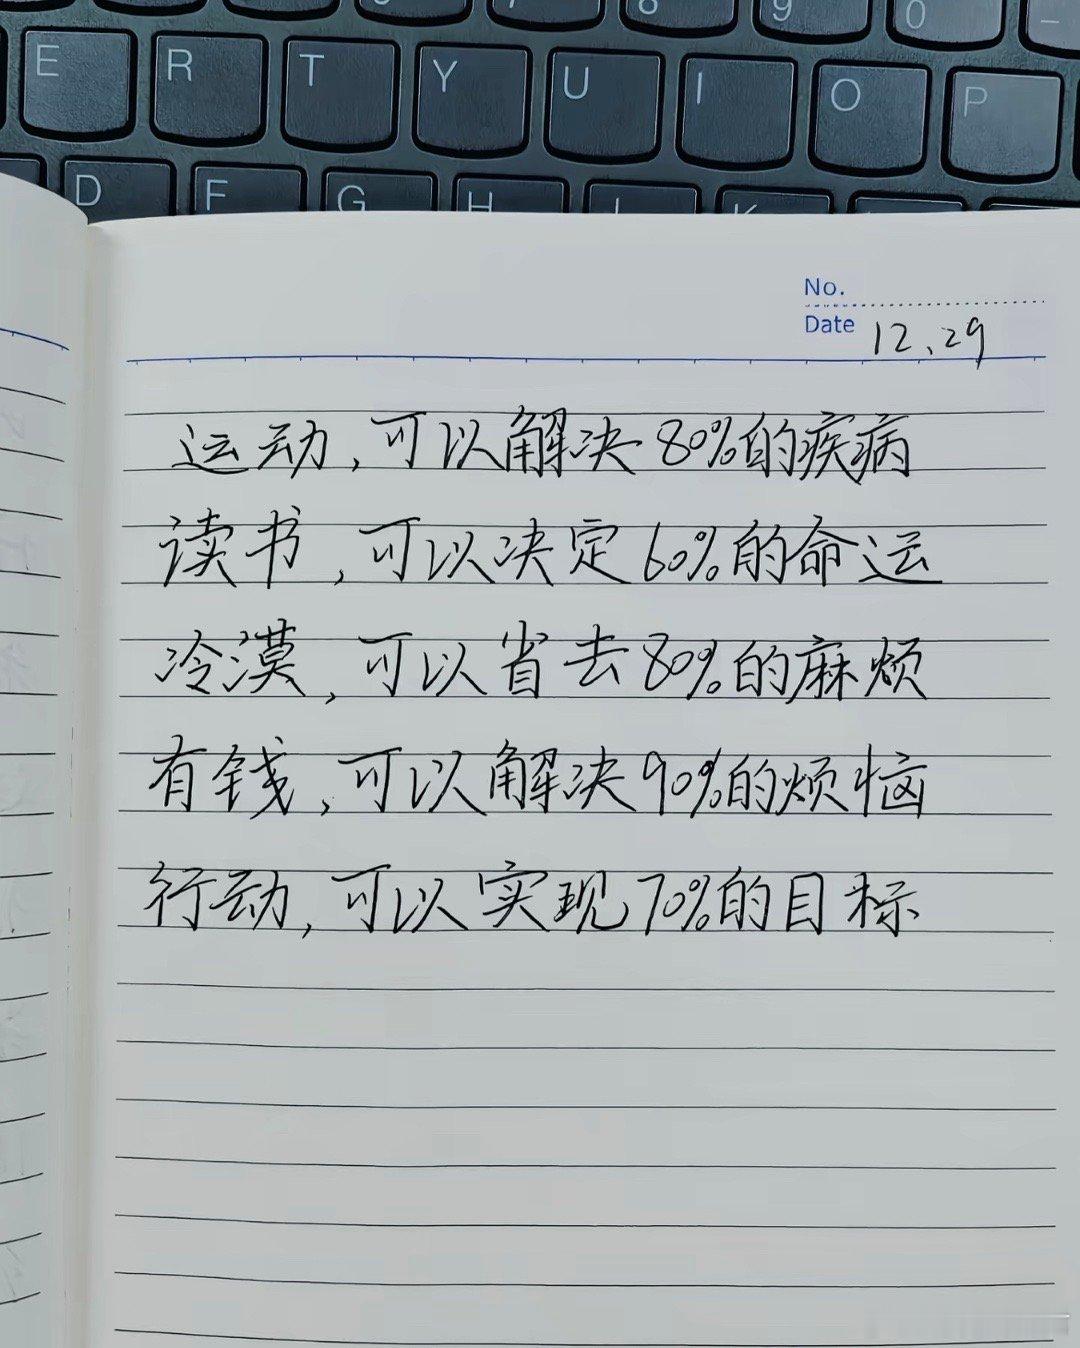 7 8 9 0 _
E R T Y U I O P
D F G H J K
No.
Date 12、29
运动,可以解决80%的疾病
读书,可以决定60%的命运
冷漠,可以省去80%的麻烦
有钱,可以解决90%的烦恼
行动,可以实现70%的目标